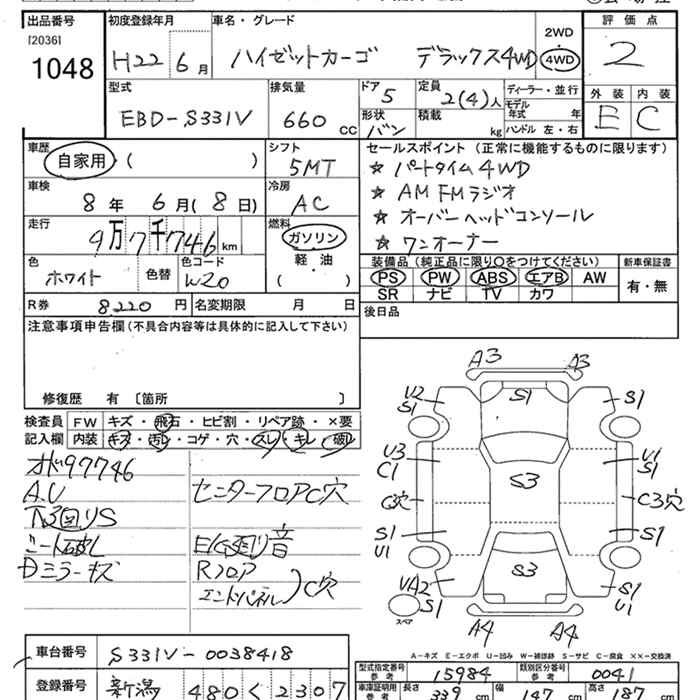 出品番号 初度登録年月 車名・グレード 2WD 評価点
[2036]
1048 H22 6月 ハイゼットカーゴ デラックス4WD 4WD 2
型式 排気量 ドア 定員 ディーラー・並行 外装 内装
EBD-S331V 660 CC 5 2(4)人 モデル年式 年 E C
形状 バン 積載 kg ハンドル 左・右
車歴 シフト セールスポイント (正常に機能するものに限ります)
自家用・( ) 5MT ☆ パートタイム4WD
車検 冷房 ☆ AM FMラジオ
8年 6月(8日) AC ☆ オーバーヘッドコンソール
走行 燃料 ☆ ワンオーナー
9万7千746km ガソリン
軽・油
( )
装備品(純正品に限り○をつけてください) 新車保証書
色 色替 色コード PS PW ABS エアB AW 有・無
ホワイト W20 SR ナビ TV カワ
R券 8,220円 名変期限 月 日 後日品
注意事項申告欄(不具合内容等は具体的に記入して下さい)
修復歴 有 〔箇所 〕
検査員 FW キズ・飛石・ヒビ割・リペア跡・×要
記入欄 内装 キズ・汚レ・コゲ・穴・スレ・キレ・破レ
メーター97746
A.U センターフロアC穴
下回りS
シート破レ E/G廻り音
Dミラーキズ Rフロア
エンドパネル)C穴
A3 A3
U2 S1 S1 S1
U3 C1 S3 U1 S1
C穴 C3穴
S1 U1 S1
UA2 S1 S3 S1 U1
スペア
A4 A4
A-キズ E-エクボ U-凹み W-補修跡 S-サビ C-腐食 XX-交換済
車台番号 S331V-0038418
型式指定番号 参考 15984 類別区分番号 参考 0041
登録番号 新潟 480 く 2307
車庫証明用 参考 長さ 339 cm 幅 147 cm 高さ 187 cm